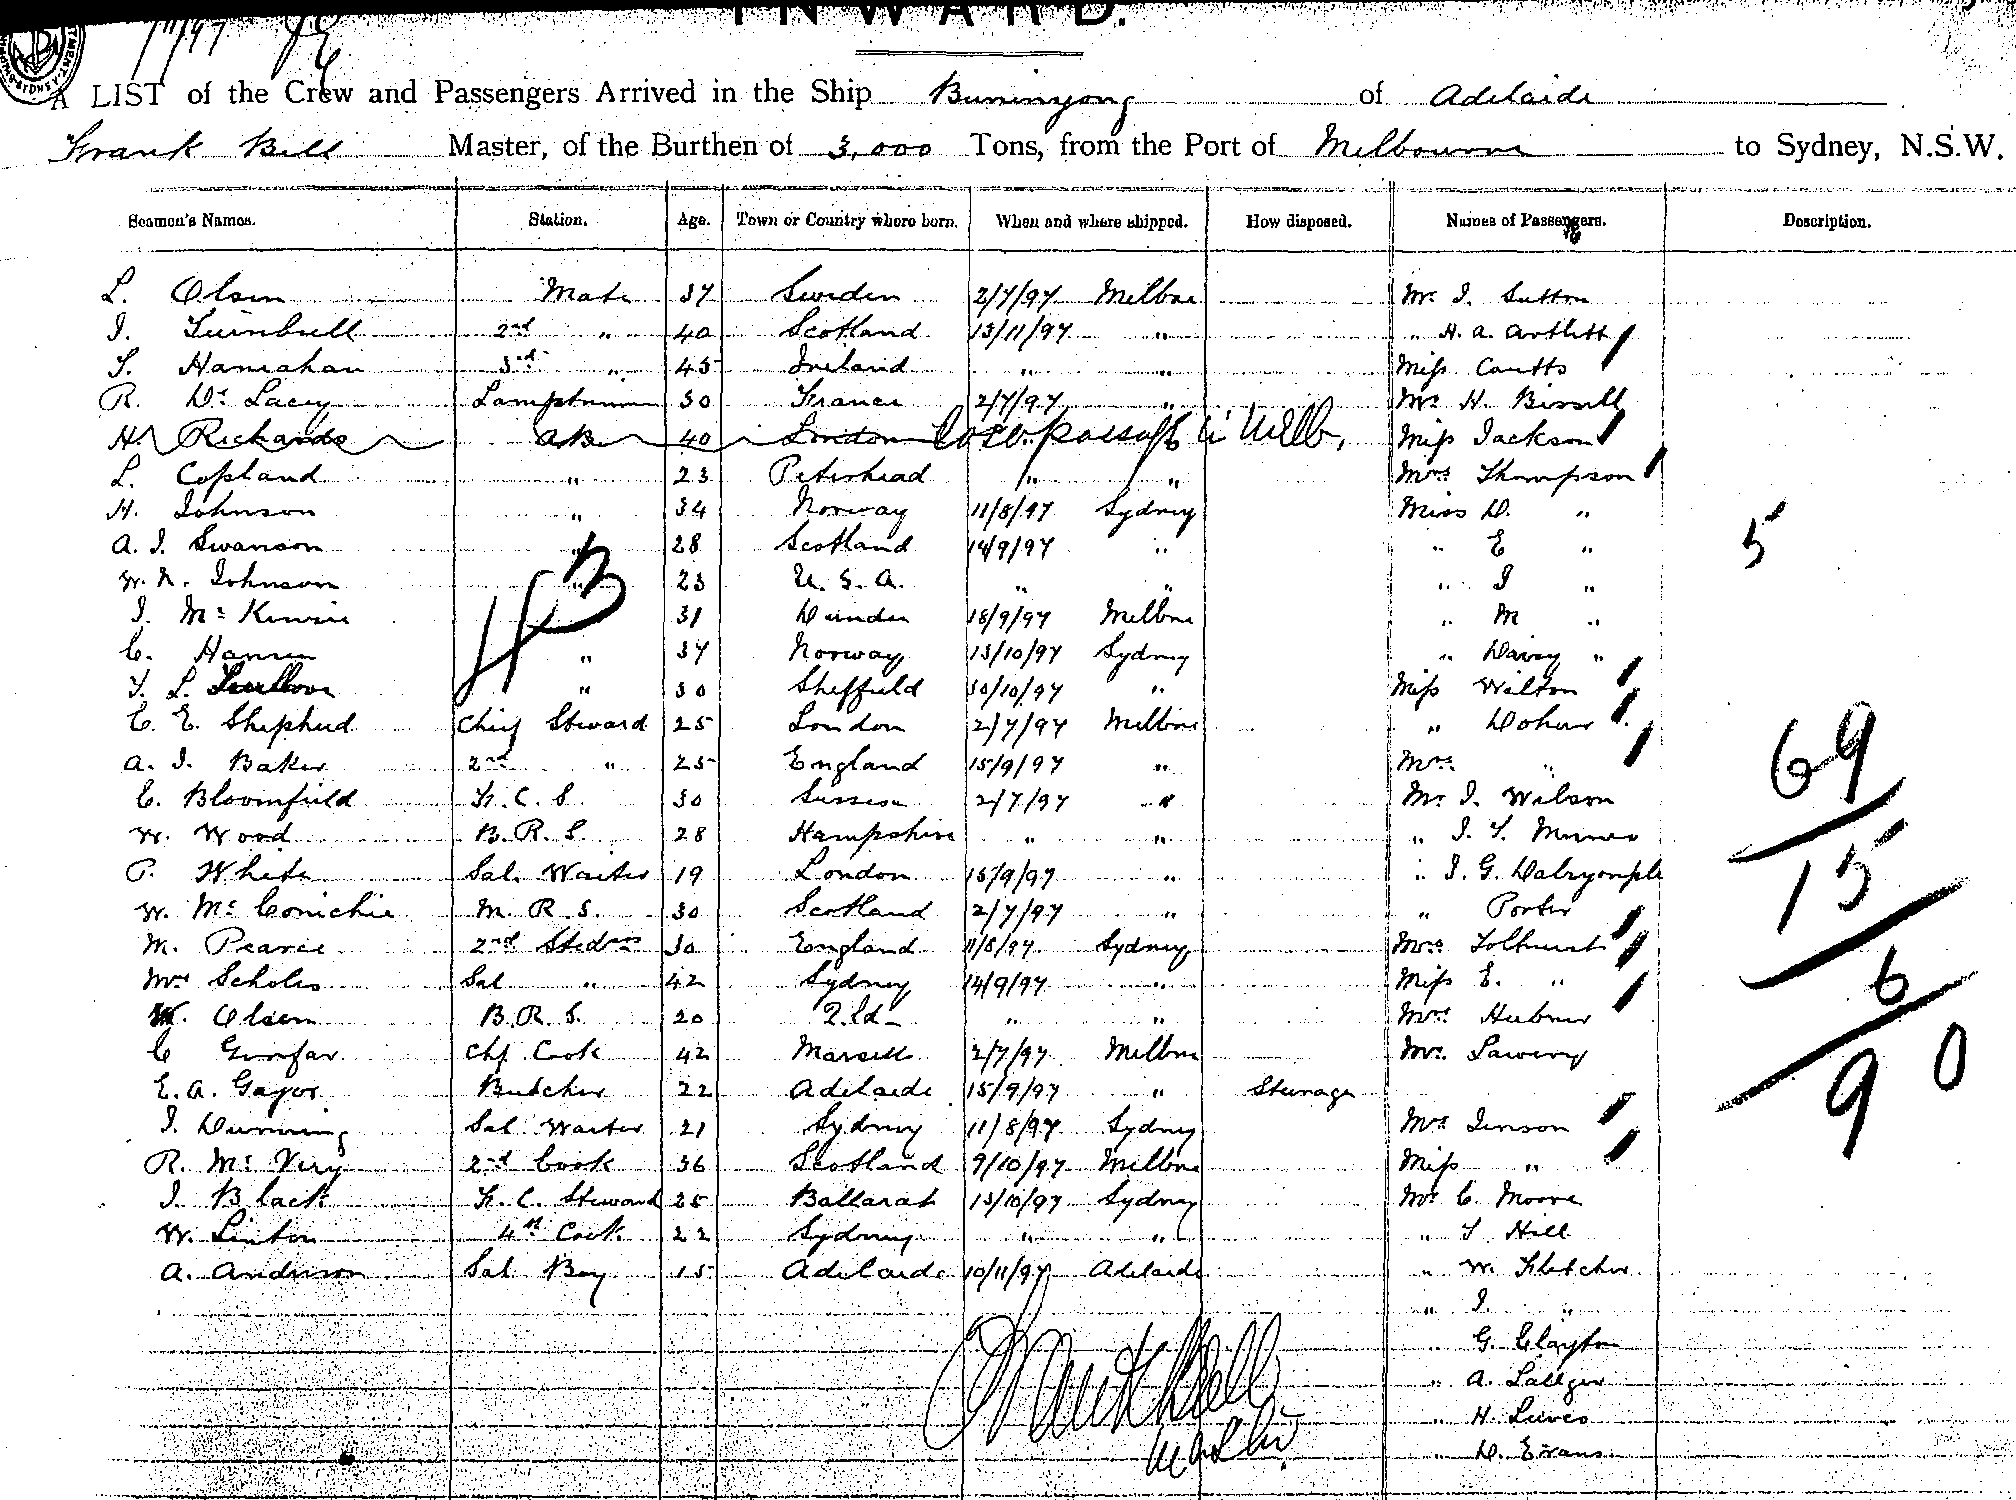 INWARD.
A LIST of the Crew and Passengers Arrived in the Ship Buninyong of Adelaide
Frank Bell Master, of the Burthen of 3,000 Tons, from the Port of Melbourne to Sydney, N.S.W.
Seamen's Names. Station. Age. Town or Country where born. When and where shipped. How disposed. Names of Passengers. Description.
L. Olsen Mate 37 Sweden 2/7/97 Melbne Mr. J. Sutton
J. Turnbull 2nd " 40 Scotland 13/11/97 " " H. A. Artlett
T. Hanrahan 3rd " 45 Ireland " " Miss Coutts
R. De Lacey Lamptrimmer 30 France 2/7/97 " Mr. H. Bissell
H. Richards AB 40 London lost passage in Melb. Miss Jackson
L. Copland " 23 Peterhead " " Mrs Thompson
H. Johnson " 34 Norway 11/8/97 Sydney Miss D. "
A. J. Swanson " 28 Scotland 14/9/97 " " E "
W. N. Johnson " 23 U. S. A. " " " J "
J. Mc 31 Dundee 18/9/97 Melbne " M "
C. Hansen " 37 Norway 13/10/97 Sydney " Davey "
T. L. " 30 Sheffield 30/10/97 " Miss Wilton
C. E. Shepherd Chief Steward 25 London 2/7/97 Melbne "
A. J. Baker 2nd " 25 England 15/9/97 " Mrs "
C. Bloomfield F. C. S. 30 Sussex 2/7/97 " Mr. J. Wilson
W. Wood B. R. S. 28 Hampshire " " " J. T.
P. White Sal. Waiter 19 London 15/9/97 " " J. G. Dalrymple
W. Mc Conichie M. R. S. 30 Scotland 2/7/97 " " Porter
M. Pearce 2nd 30 England 11/8/97 Sydney Mrs Tolhurst
Mrs Scholes Sal " 42 Sydney 14/9/97 " Miss E. "
W. Olsen B. R. S. 20 Q.ld " " Mrs Hubner
C Chf. Cook 42 Marseille 2/7/97 Melbne Mr.
E. A. Butcher 22 Adelaide 15/9/97 " Steerage
J. Dunning Sal Waiter 21 Sydney 11/8/97 Sydney Mrs Jenson
R. Mc Very 2nd Cook 36 Scotland 9/10/97 Melbne Miss "
J. Black F. C. Steward 25 Ballarat 13/10/97 Sydney Mr C. Moore
W. Linton 4th Cook 22 Sydney " " " T. Hill
A. Anderson Sal Boy 15 Adelaide 10/11/97 Adelaide " W. Fletcher
" J. "
" G. Clayton
" A.
" H.
" D. Evans
Frank Bell
Master
43
5
69
15
6
90